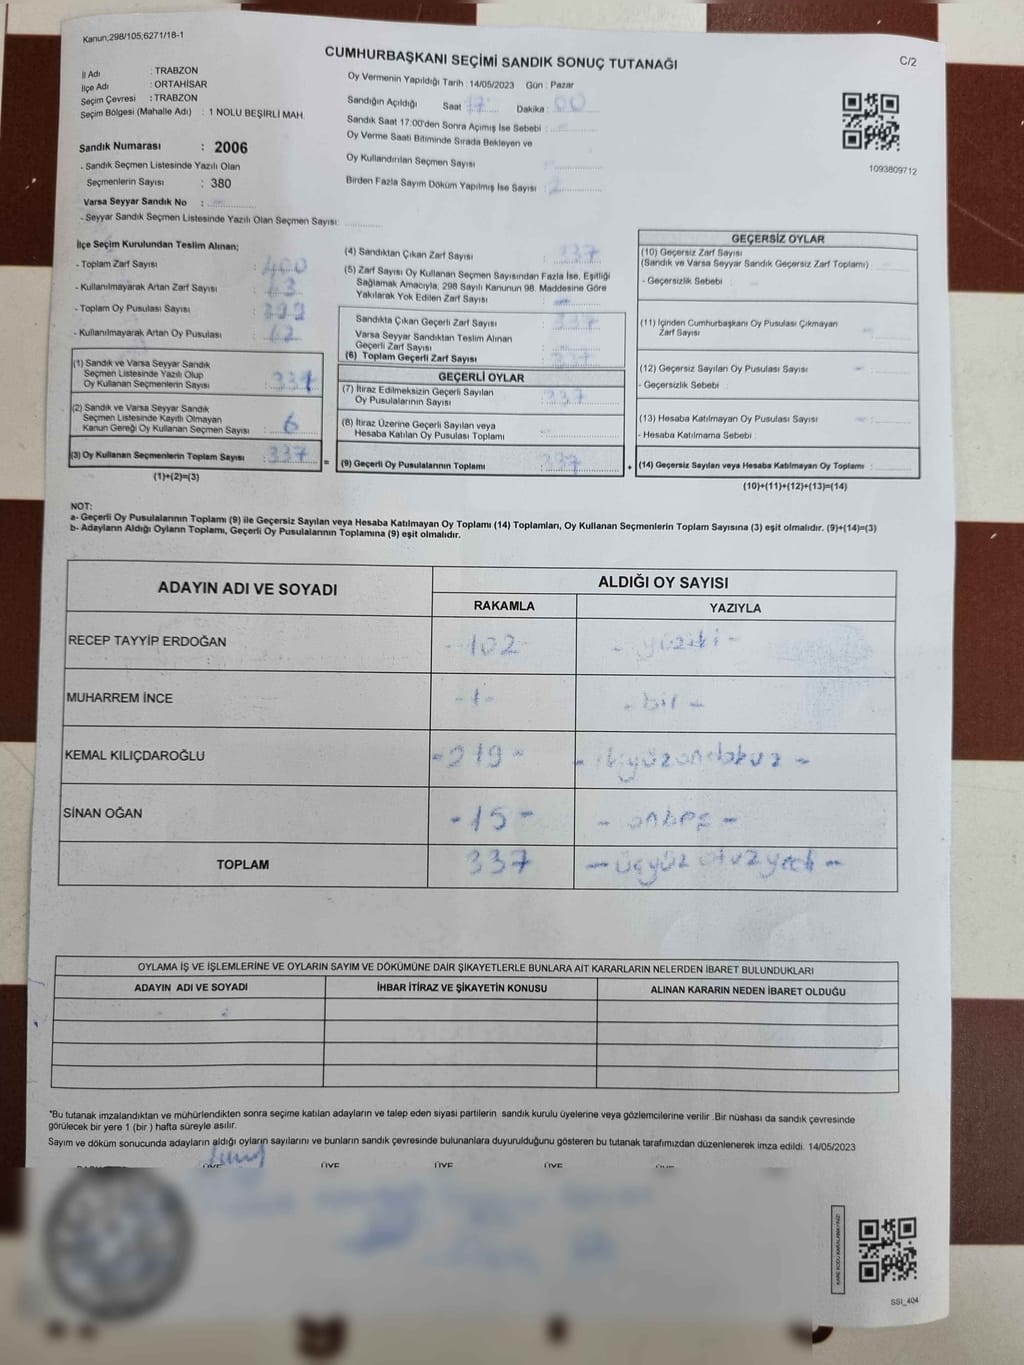 Kanun,298/105,6271/18-1
CUMHURBAŞKANI SEÇİMİ SANDIK SONUÇ TUTANAĞI
C/2
İl Adı : TRABZON
İlçe Adı : ORTAHİSAR
Seçim Çevresi : TRABZON
Seçim Bölgesi (Mahalle Adı) : 1 NOLU BEŞİRLİ MAH.
Sandık Numarası : 2006
- Sandık Seçmen Listesinde Yazılı Olan
Seçmenlerin Sayısı : 380
Varsa Seyyar Sandık No :
- Seyyar Sandık Seçmen Listesinde Yazılı Olan Seçmen Sayısı:
Oy Vermenin Yapıldığı Tarih : 14/05/2023 Gün : Pazar
Sandığın Açıldığı Saat 17 Dakika : 00
Sandık Saat 17:00'den Sonra Açımış İse Sebebi :
Oy Verme Saati Bitiminde Sırada Bekleyen ve
Oy Kullandırılan Seçmen Sayısı
Birden Fazla Sayım Döküm Yapılmış İse Sayısı :
1093809712
İlçe Seçim Kurulundan Teslim Alınan;
- Toplam Zarf Sayısı : 400
- Kullanılmayarak Artan Zarf Sayısı : 63
- Toplam Oy Pusulası Sayısı : 399
- Kullanılmayarak Artan Oy Pusulası : 62
(1) Sandık ve Varsa Seyyar Sandık
Seçmen Listesinde Yazılı Olup
Oy Kullanan Seçmenlerin Sayısı :
(2) Sandık ve Varsa Seyyar Sandık
Seçmen Listesinde Kayıtlı Olmayan
Kanun Gereği Oy Kullanan Seçmen Sayısı : 6
(3) Oy Kullanan Seçmenlerin Toplam Sayısı : 337
(1)+(2)=(3)
(4) Sandıktan Çıkan Zarf Sayısı : 337
(5) Zarf Sayısı Oy Kullanan Seçmen Sayısından Fazla İse, Eşitliği
Sağlamak Amacıyla, 298 Sayılı Kanunun 98. Maddesine Göre
Yakılarak Yok Edilen Zarf Sayısı :
Sandıkta Çıkan Geçerli Zarf Sayısı : 337
Varsa Seyyar Sandıktan Teslim Alınan
Geçerli Zarf Sayısı :
(6) Toplam Geçerli Zarf Sayısı : 337
GEÇERLİ OYLAR
(7) İtiraz Edilmeksizin Geçerli Sayılan
Oy Pusulalarının Sayısı : 337
(8) İtiraz Üzerine Geçerli Sayılan veya
Hesaba Katılan Oy Pusulası Toplamı :
= (9) Geçerli Oy Pusulalarının Toplamı : 337
GEÇERSİZ OYLAR
(10) Geçersiz Zarf Sayısı
(Sandık ve Varsa Seyyar Sandık Geçersiz Zarf Toplamı) :
- Geçersizlik Sebebi :
(11) İçinden Cumhurbaşkanı Oy Pusulası Çıkmayan
Zarf Sayısı
(12) Geçersiz Sayılan Oy Pusulası Sayısı :
- Geçersizlik Sebebi :
(13) Hesaba Katılmayan Oy Pusulası Sayısı :
- Hesaba Katılmama Sebebi :
+ (14) Geçersiz Sayılan veya Hesaba Katılmayan Oy Toplamı :
(10)+(11)+(12)+(13)=(14)
NOT:
a- Geçerli Oy Pusulalarının Toplamı (9) ile Geçersiz Sayılan veya Hesaba Katılmayan Oy Toplamı (14) Toplamları, Oy Kullanan Seçmenlerin Toplam Sayısına (3) eşit olmalıdır. (9)+(14)=(3)
b- Adayların Aldığı Oyların Toplamı, Geçerli Oy Pusulalarının Toplamına (9) eşit olmalıdır.
ADAYIN ADI VE SOYADI
ALDIĞI OY SAYISI
RAKAMLA YAZIYLA
RECEP TAYYİP ERDOĞAN -102- - yüziki -
MUHARREM İNCE -1- - bir -
KEMAL KILIÇDAROĞLU -219- - ikiyüzondokuz -
SİNAN OĞAN -15- - onbeş -
TOPLAM 337 - üçyüz otuzyedi -
OYLAMA İŞ VE İŞLEMLERİNE VE OYLARIN SAYIM VE DÖKÜMÜNE DAİR ŞİKAYETLERLE BUNLARA AİT KARARLARIN NELERDEN İBARET BULUNDUKLARI
ADAYIN ADI VE SOYADI İHBAR İTİRAZ VE ŞİKAYETİN KONUSU ALINAN KARARIN NEDEN İBARET OLDUĞU
*Bu tutanak imzalandıktan ve mühürlendikten sonra seçime katılan adayların ve talep eden siyasi partilerin sandık kurulu üyelerine veya gözlemcilerine verilir .Bir nüshası da sandık çevresinde
görülecek bir yere 1 (bir ) hafta süreyle asılır.
Sayım ve döküm sonucunda adayların aldığı oyların sayılarını ve bunların sandık çevresinde bulunanlara duyurulduğunu gösteren bu tutanak tarafımızdan düzenlenerek imza edildi. 14/05/2023
ÜYE ÜYE ÜYE ÜYE
KARE KODU KARALAMAYINIZ!
SSI_404